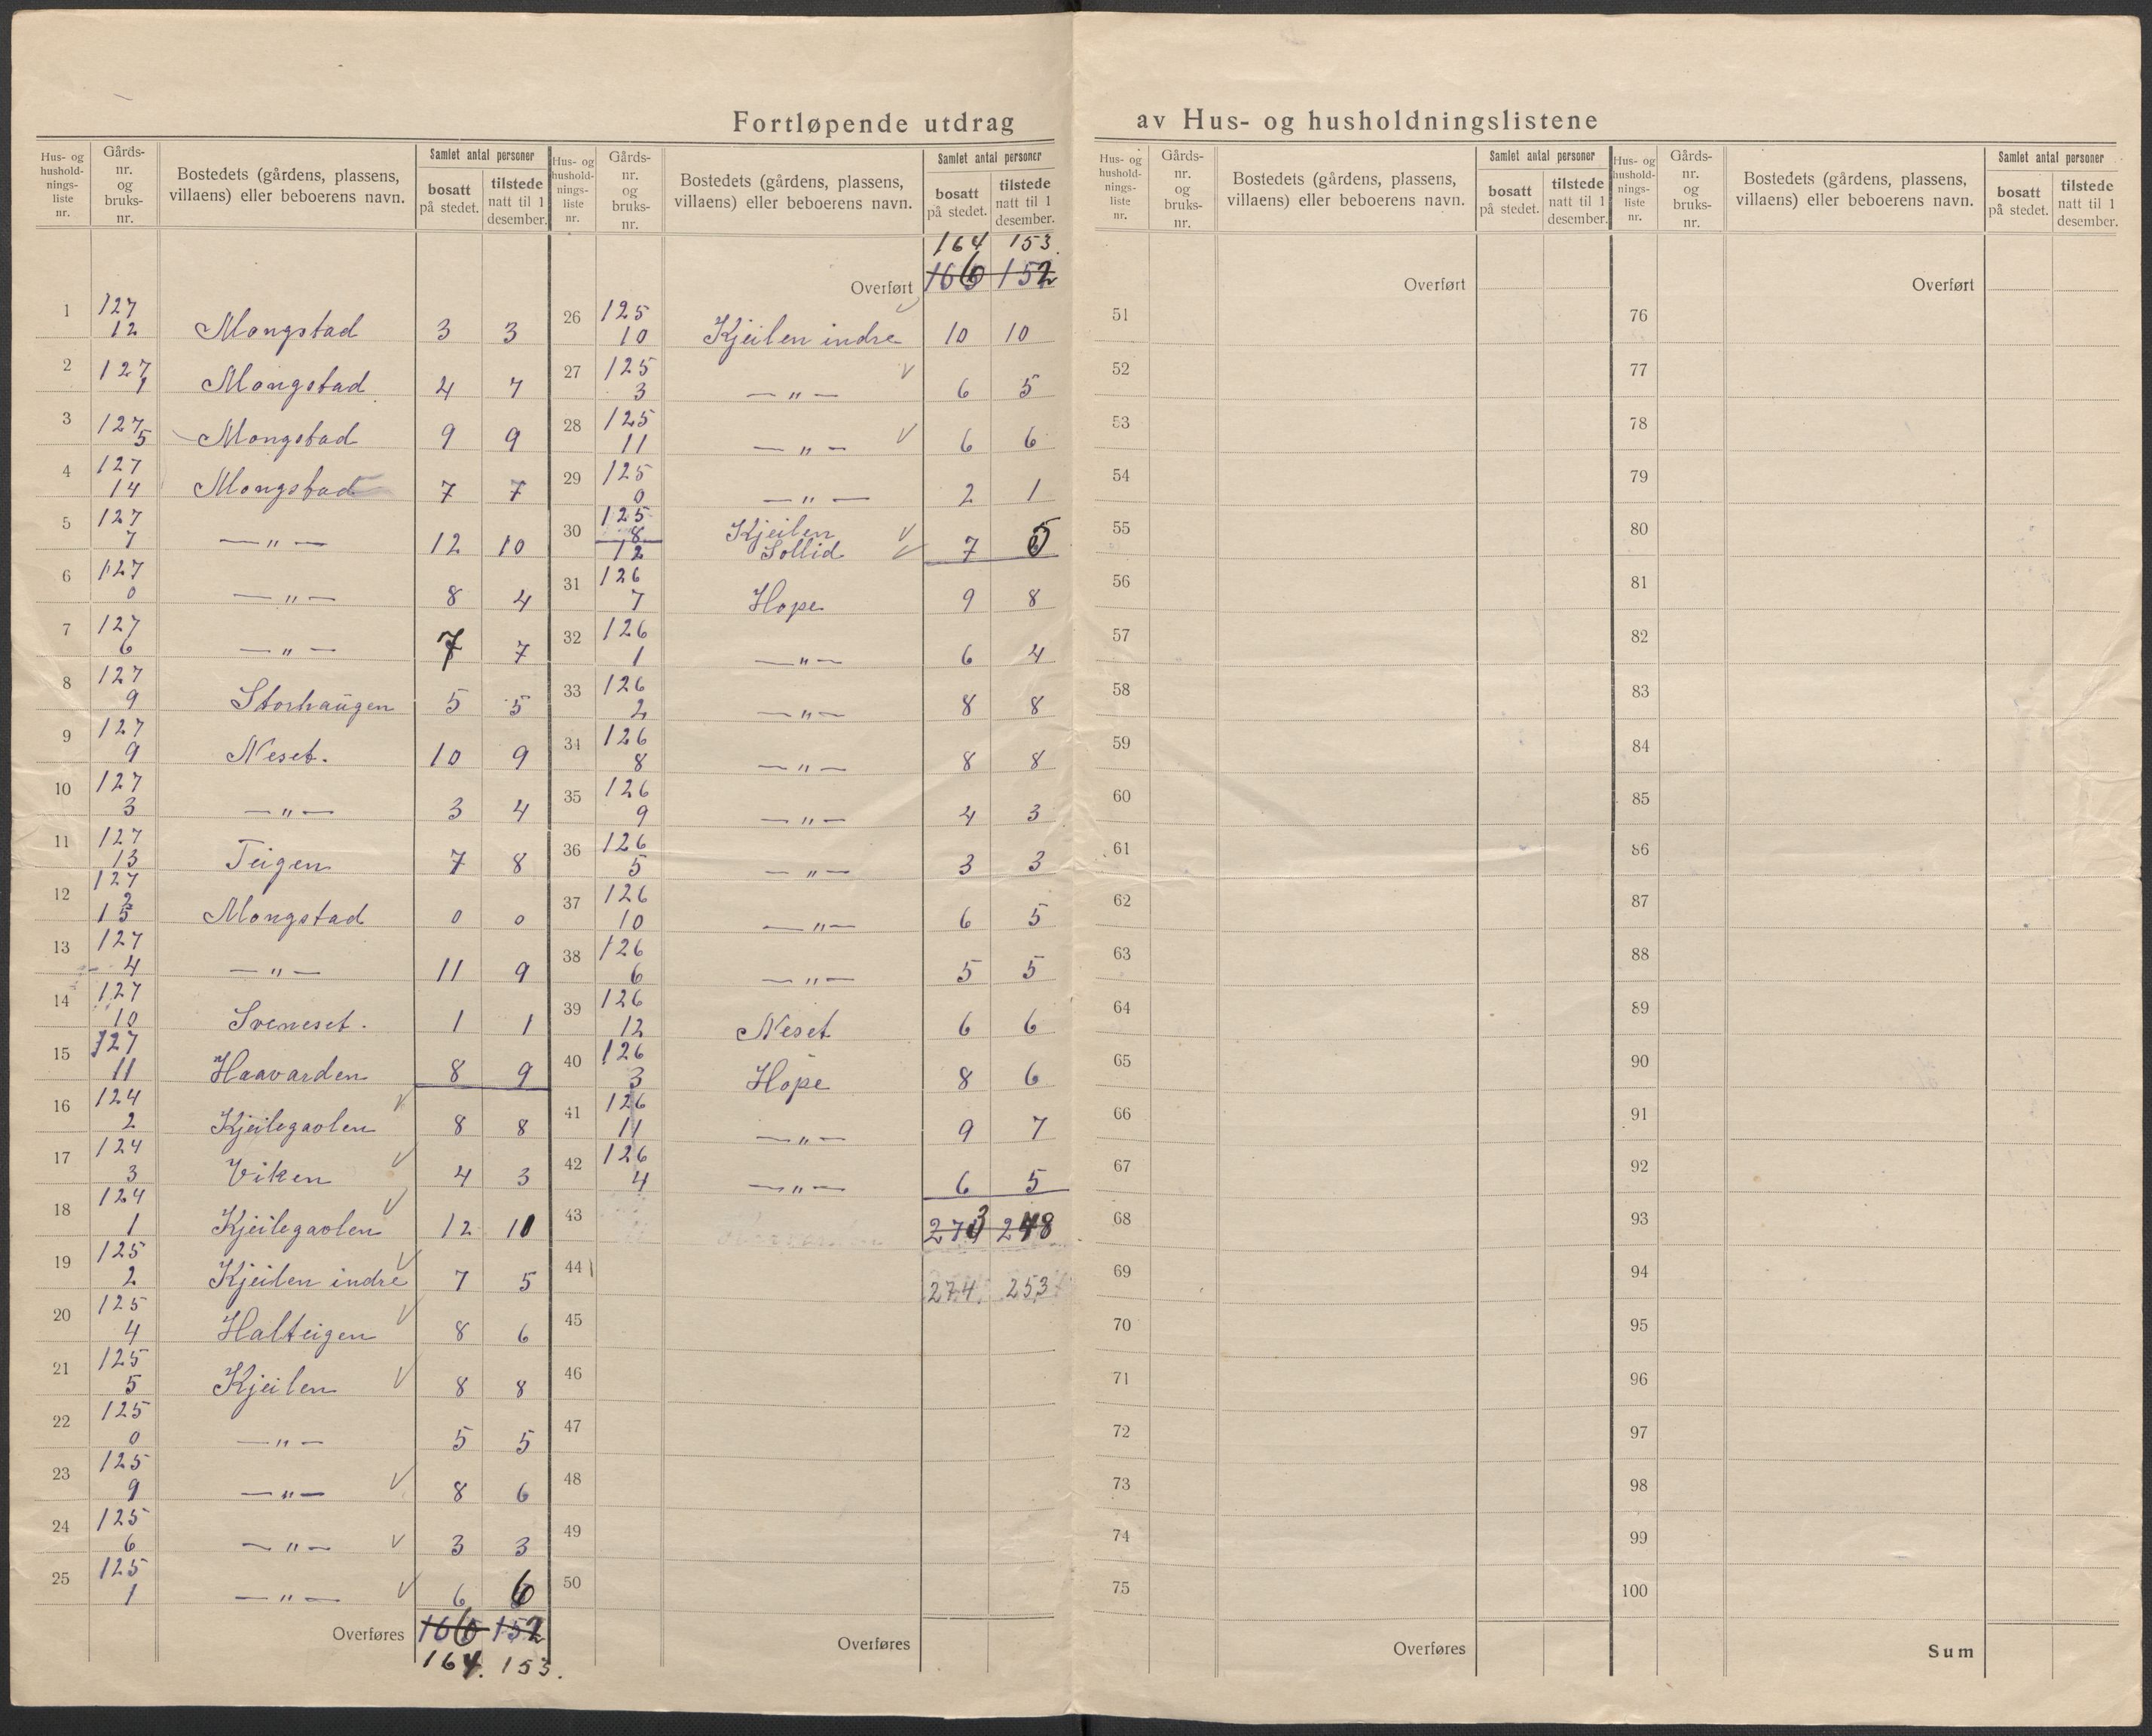 Fortløpende utdrag av Hus- og husholdningslistene
Hus- og hushold-nings-liste nr. | Gårds-nr. og bruks-nr. | Bostedets (gårdens, plassens, villaens) eller beboerens navn. | Samlet antal personer | bosatt på stedet. | tilstede natt til 1 desember.
1 127 12 Mongstad 3 3
2 127 1 Mongstad 4 7
3 127 5 Mongstad 9 9
4 127 14 Mongstad 7 7
5 127 7 — " — 12 10
6 127 0 — " — 8 4
7 127 6 — " — 7 7
8 127 9 Storhaugen 5 5
9 127 9 Neset. 10 9
10 127 3 — " — 3 4
11 127 13 Teigen 7 8
12 127 2 15 Mongstad 0 0
13 127 4 — " — 11 9
14 127 10 Sveneset. 1 1
15 127 11 Haavarden 8 9
16 124 2 Kjeilegavlen 8 8
17 124 3 Viken 4 3
18 124 1 Kjeilegavlen 12 10
19 125 2 Kjeilen indre 7 5
20 125 4 Halteigen 8 6
21 125 5 Kjeilen 8 8
22 125 0 — " — 5 5
23 125 9 — " — 8 6
24 125 6 — " — 3 3
25 125 1 — " — 6 6
Overføres 166 152
164. 153.
Hus- og hushold-nings-liste nr. | Gårds-nr. og bruks-nr. | Bostedets (gårdens, plassens, villaens) eller beboerens navn. | Samlet antal personer | bosatt på stedet. | tilstede natt til 1 desember.
164 153.
Overført 166 152
26 125 10 Kjeilen indre 10 10
27 125 3 — " — 6 5
28 125 11 — " — 6 6
29 125 0 — " — 2 1
30 125 8 12 Kjeilen Sollid 7 5
31 126 7 Hope 9 8
32 126 1 — " — 6 4
33 126 2 — " — 8 8
34 126 8 — " — 8 8
35 126 9 — " — 4 3
36 126 5 — " — 3 3
37 126 10 — " — 6 5
38 126 6 — " — 5 5
39 126 12 Neset 6 6
40 126 3 Hope 8 6
41 126 11 — " — 9 7
42 126 4 — " — 6 5
43 273 248
44 274. 253
45
46
47
48
49
50
Overføres
Hus- og hushold-nings-liste nr. | Gårds-nr. og bruks-nr. | Bostedets (gårdens, plassens, villaens) eller beboerens navn. | Samlet antal personer | bosatt på stedet. | tilstede natt til 1 desember.
Overført
51
52
53
54
55
56
57
58
59
60
61
62
63
64
65
66
67
68
69
70
71
72
73
74
75
Overføres
Hus- og hushold-nings-liste nr. | Gårds-nr. og bruks-nr. | Bostedets (gårdens, plassens, villaens) eller beboerens navn. | Samlet antal personer | bosatt på stedet. | tilstede natt til 1 desember.
Overført
76
77
78
79
80
81
82
83
84
85
86
87
88
89
90
91
92
93
94
95
96
97
98
99
100
Sum